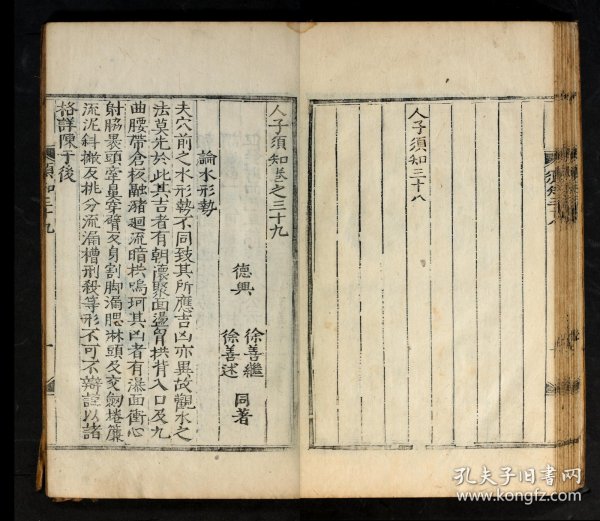 人子須知三十八
須知三十八
人子須知卷之三十九
德興
徐善繼
徐善述
同著
論水形勢
夫穴前之水形勢不同致其所應吉凶亦異故觀水之
法莫先於此其吉者有朝懷聚面盪胷拱背入口及九
曲腰帶倉板融瀦廻流暗拱鳴珂其凶者有瀑面衝心
射脇裹頭穿臂反身割脚漏腮淋頭反交劒捲簾
流泥斜撇反挑分流漏槽刑殺等形不可不辯註以諸
格詳陳于後
須知三十九
孔夫子旧书网
www.kongfz.com